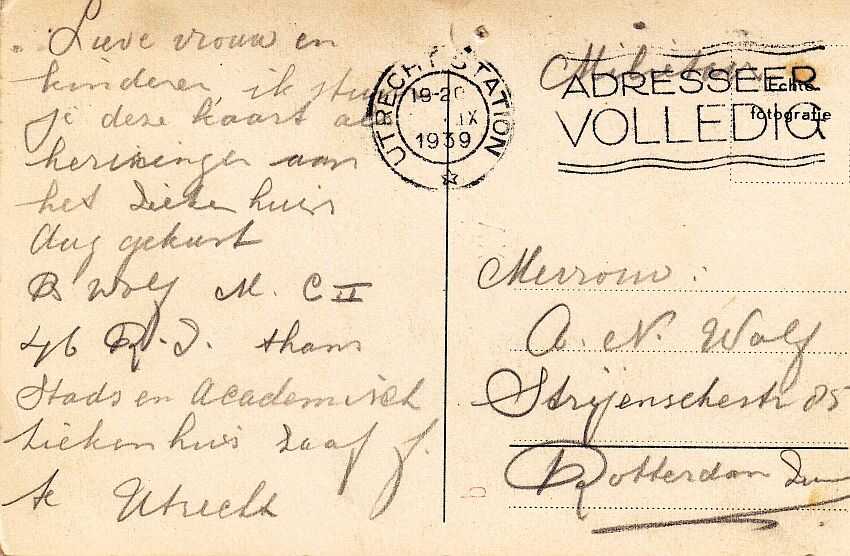 Lieve vrouw en
kinderen, ik stuur
je deze kaart als
herinninger aan
het Zieken huis
Aug gekust
B Wolf M. C II
46 R. I. thans
Stads en Academisch
Ziekenhuis Zaal f.
te Utrecht
UTRECHT STATION
19-20
IX
1939
Militair
ADRESSEER
VOLLEDIG
Echte
fotografie
Mevrouw:
A. N. Wolf
Strijenschestr 85
Rotterdam Zuid